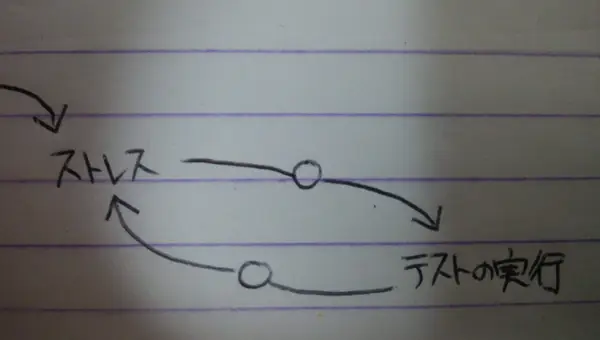 ストレス
テストの実行